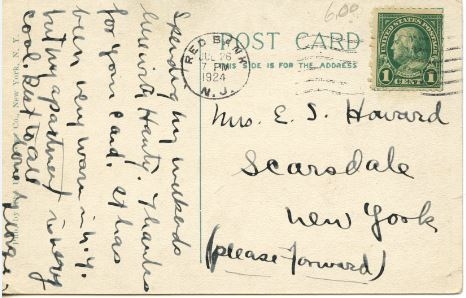 6.00
POST CARD
THIS SIDE IS FOR THE ADDRESS
RED BANK
JUL 26
7 PM
1924
N.J.
UNITED STATES POSTAGE
FRANKLIN
1 CENT 1
Mrs. E. S. Howard
Scarsdale
New York
(please forward)
Spending my weekends
with Hauty. Thanks
for your card. It has
been very warm in N.Y.
but my apartment is very
cool. Best to all
Love
Co., New York, N. Y.